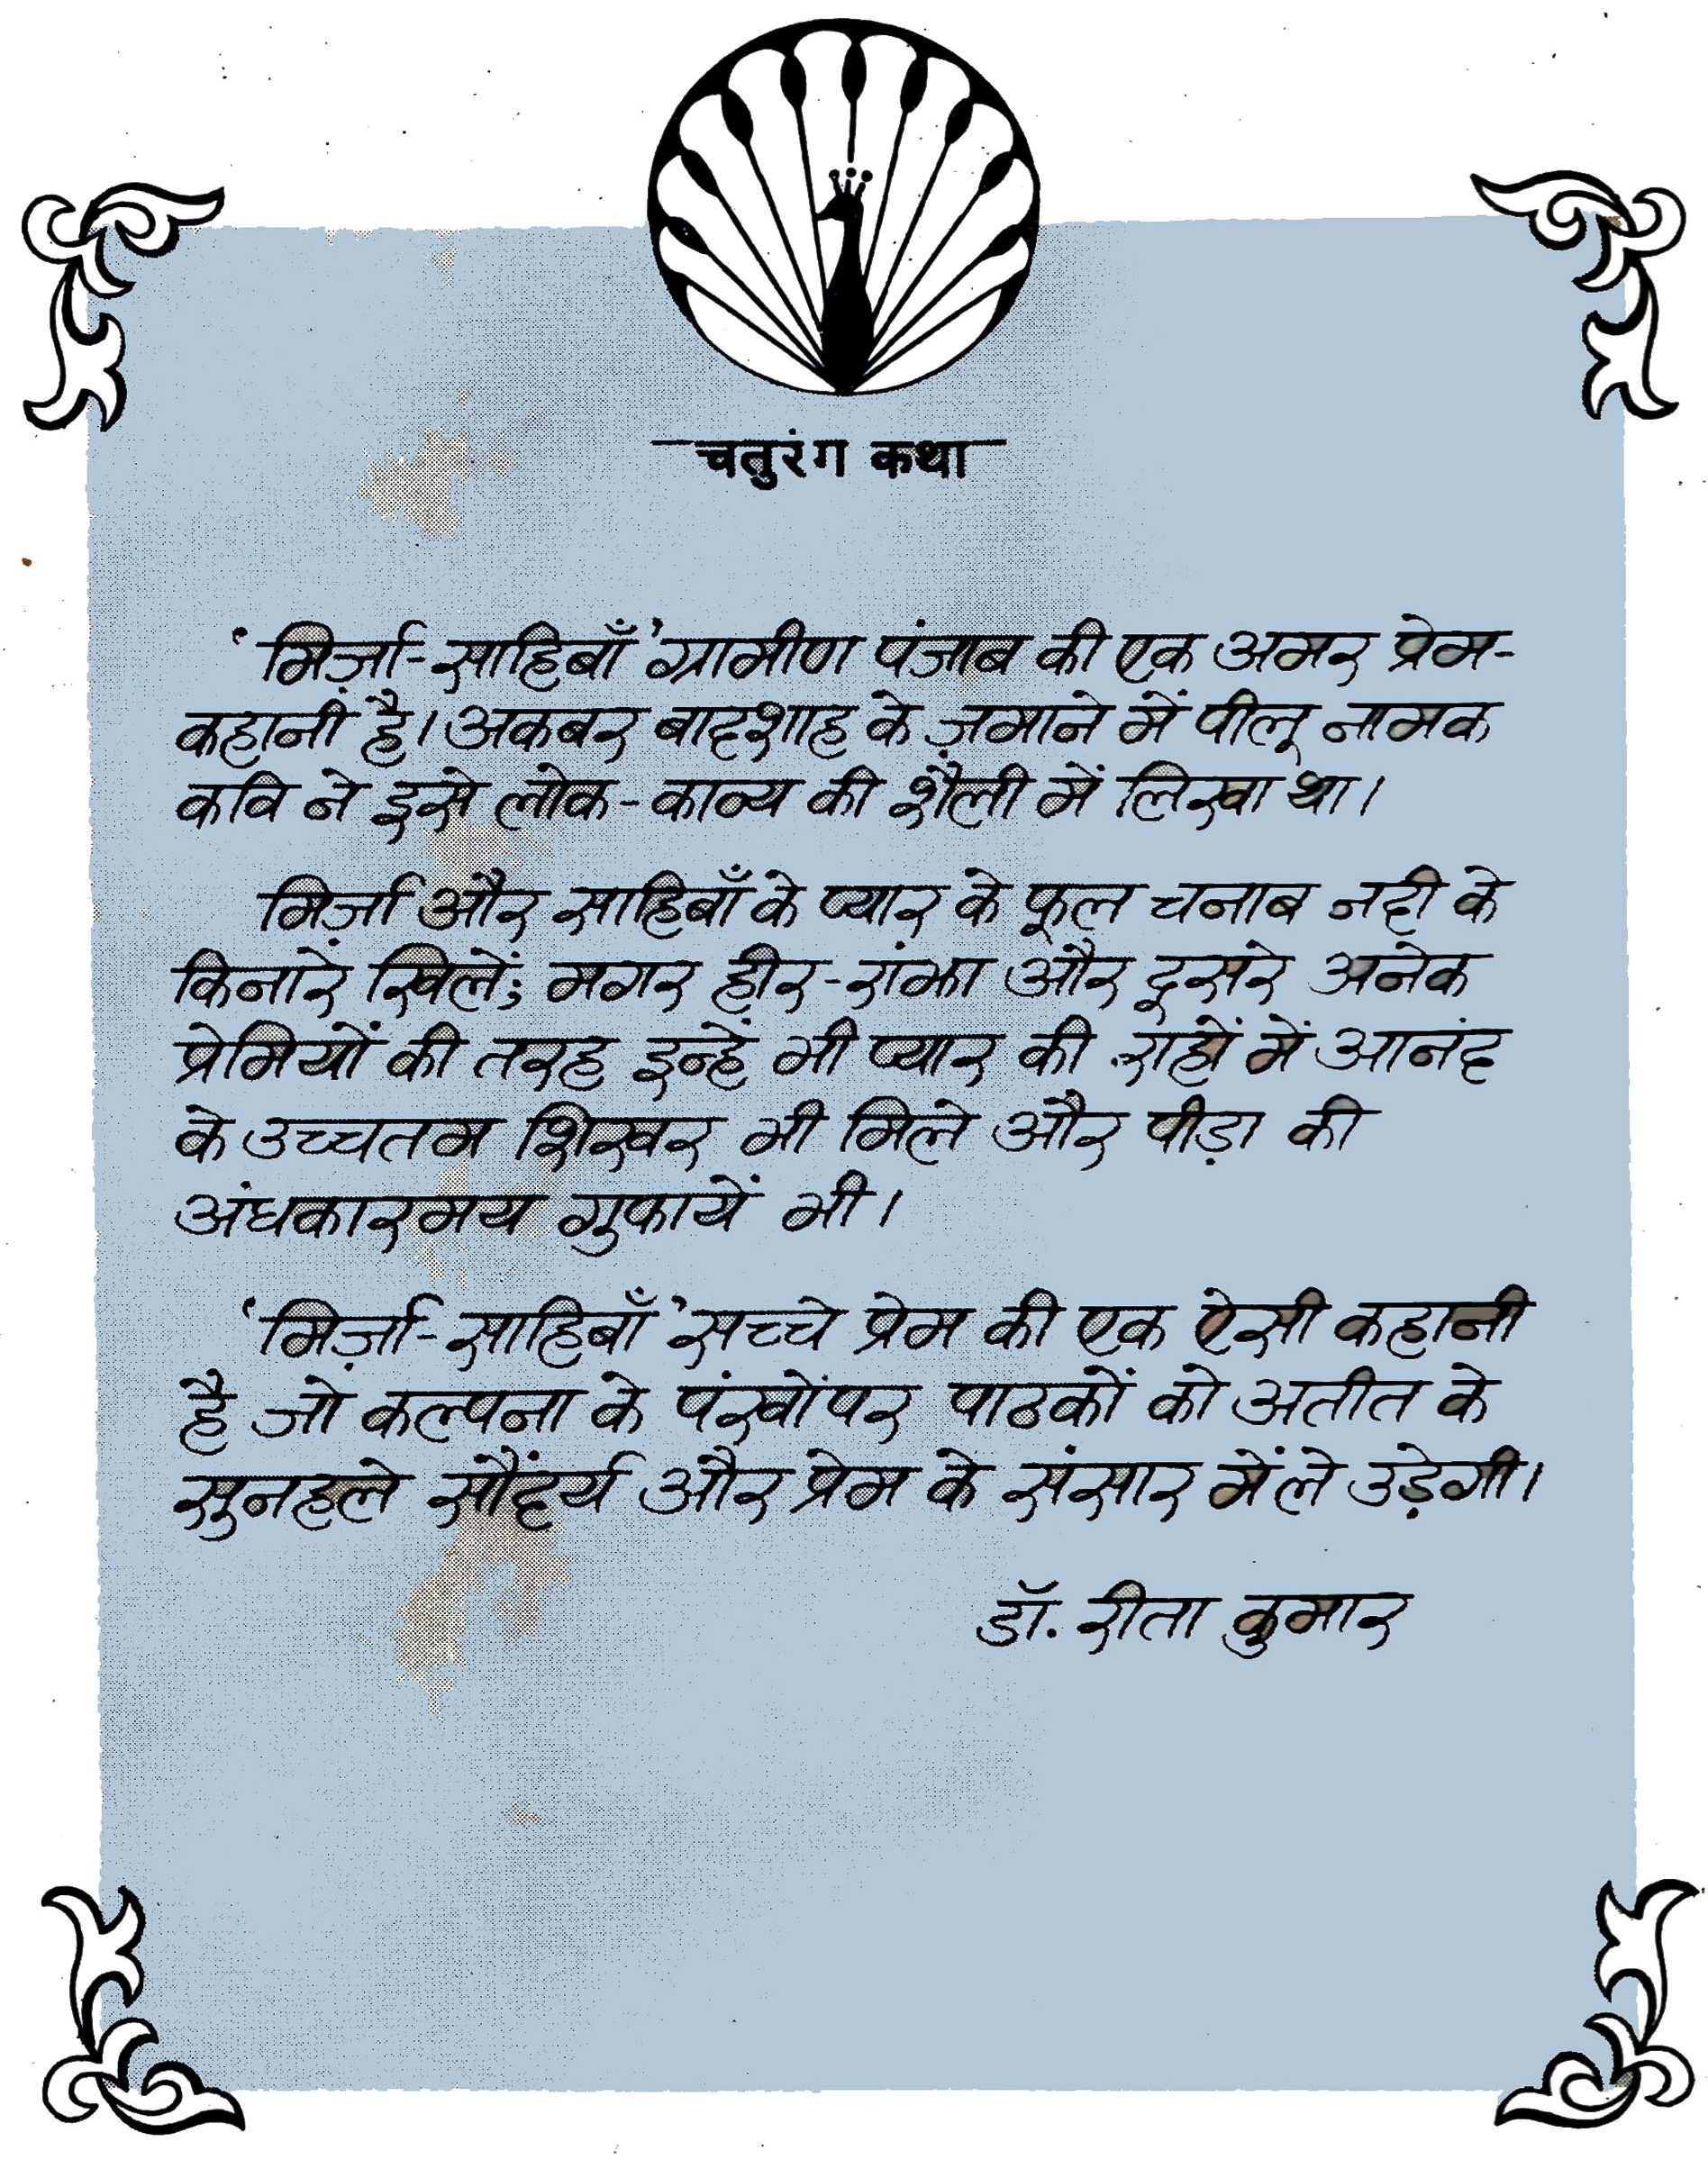 चतुरंग कथा
‘मिर्ज़ा-साहिबाँ’ ग्रामीण पंजाब की एक अमर प्रेम-
कहानी है। अकबर बादशाह के ज़माने में पीलू नामक
कवि ने इसे लोक-काव्य की शैली में लिखा था।
मिर्ज़ा और साहिबाँ के प्यार के फूल चनाब नदी के
किनारे खिले; मगर हीर-रांझा और दूसरे अनेक
प्रेमियों की तरह इन्हें भी प्यार की राहों में आनंद
के उच्चतम शिखर भी मिले और पीड़ा की
अंधकारमय गुफायें भी।
‘मिर्ज़ा-साहिबाँ’ सच्चे प्रेम की एक ऐसी कहानी
है जो कल्पना के पंखोंपर पाठकों को अतीत के
सुनहले सौंदर्य और प्रेम के संसार में ले उड़ेगी।
डॉ. रीता कुमार